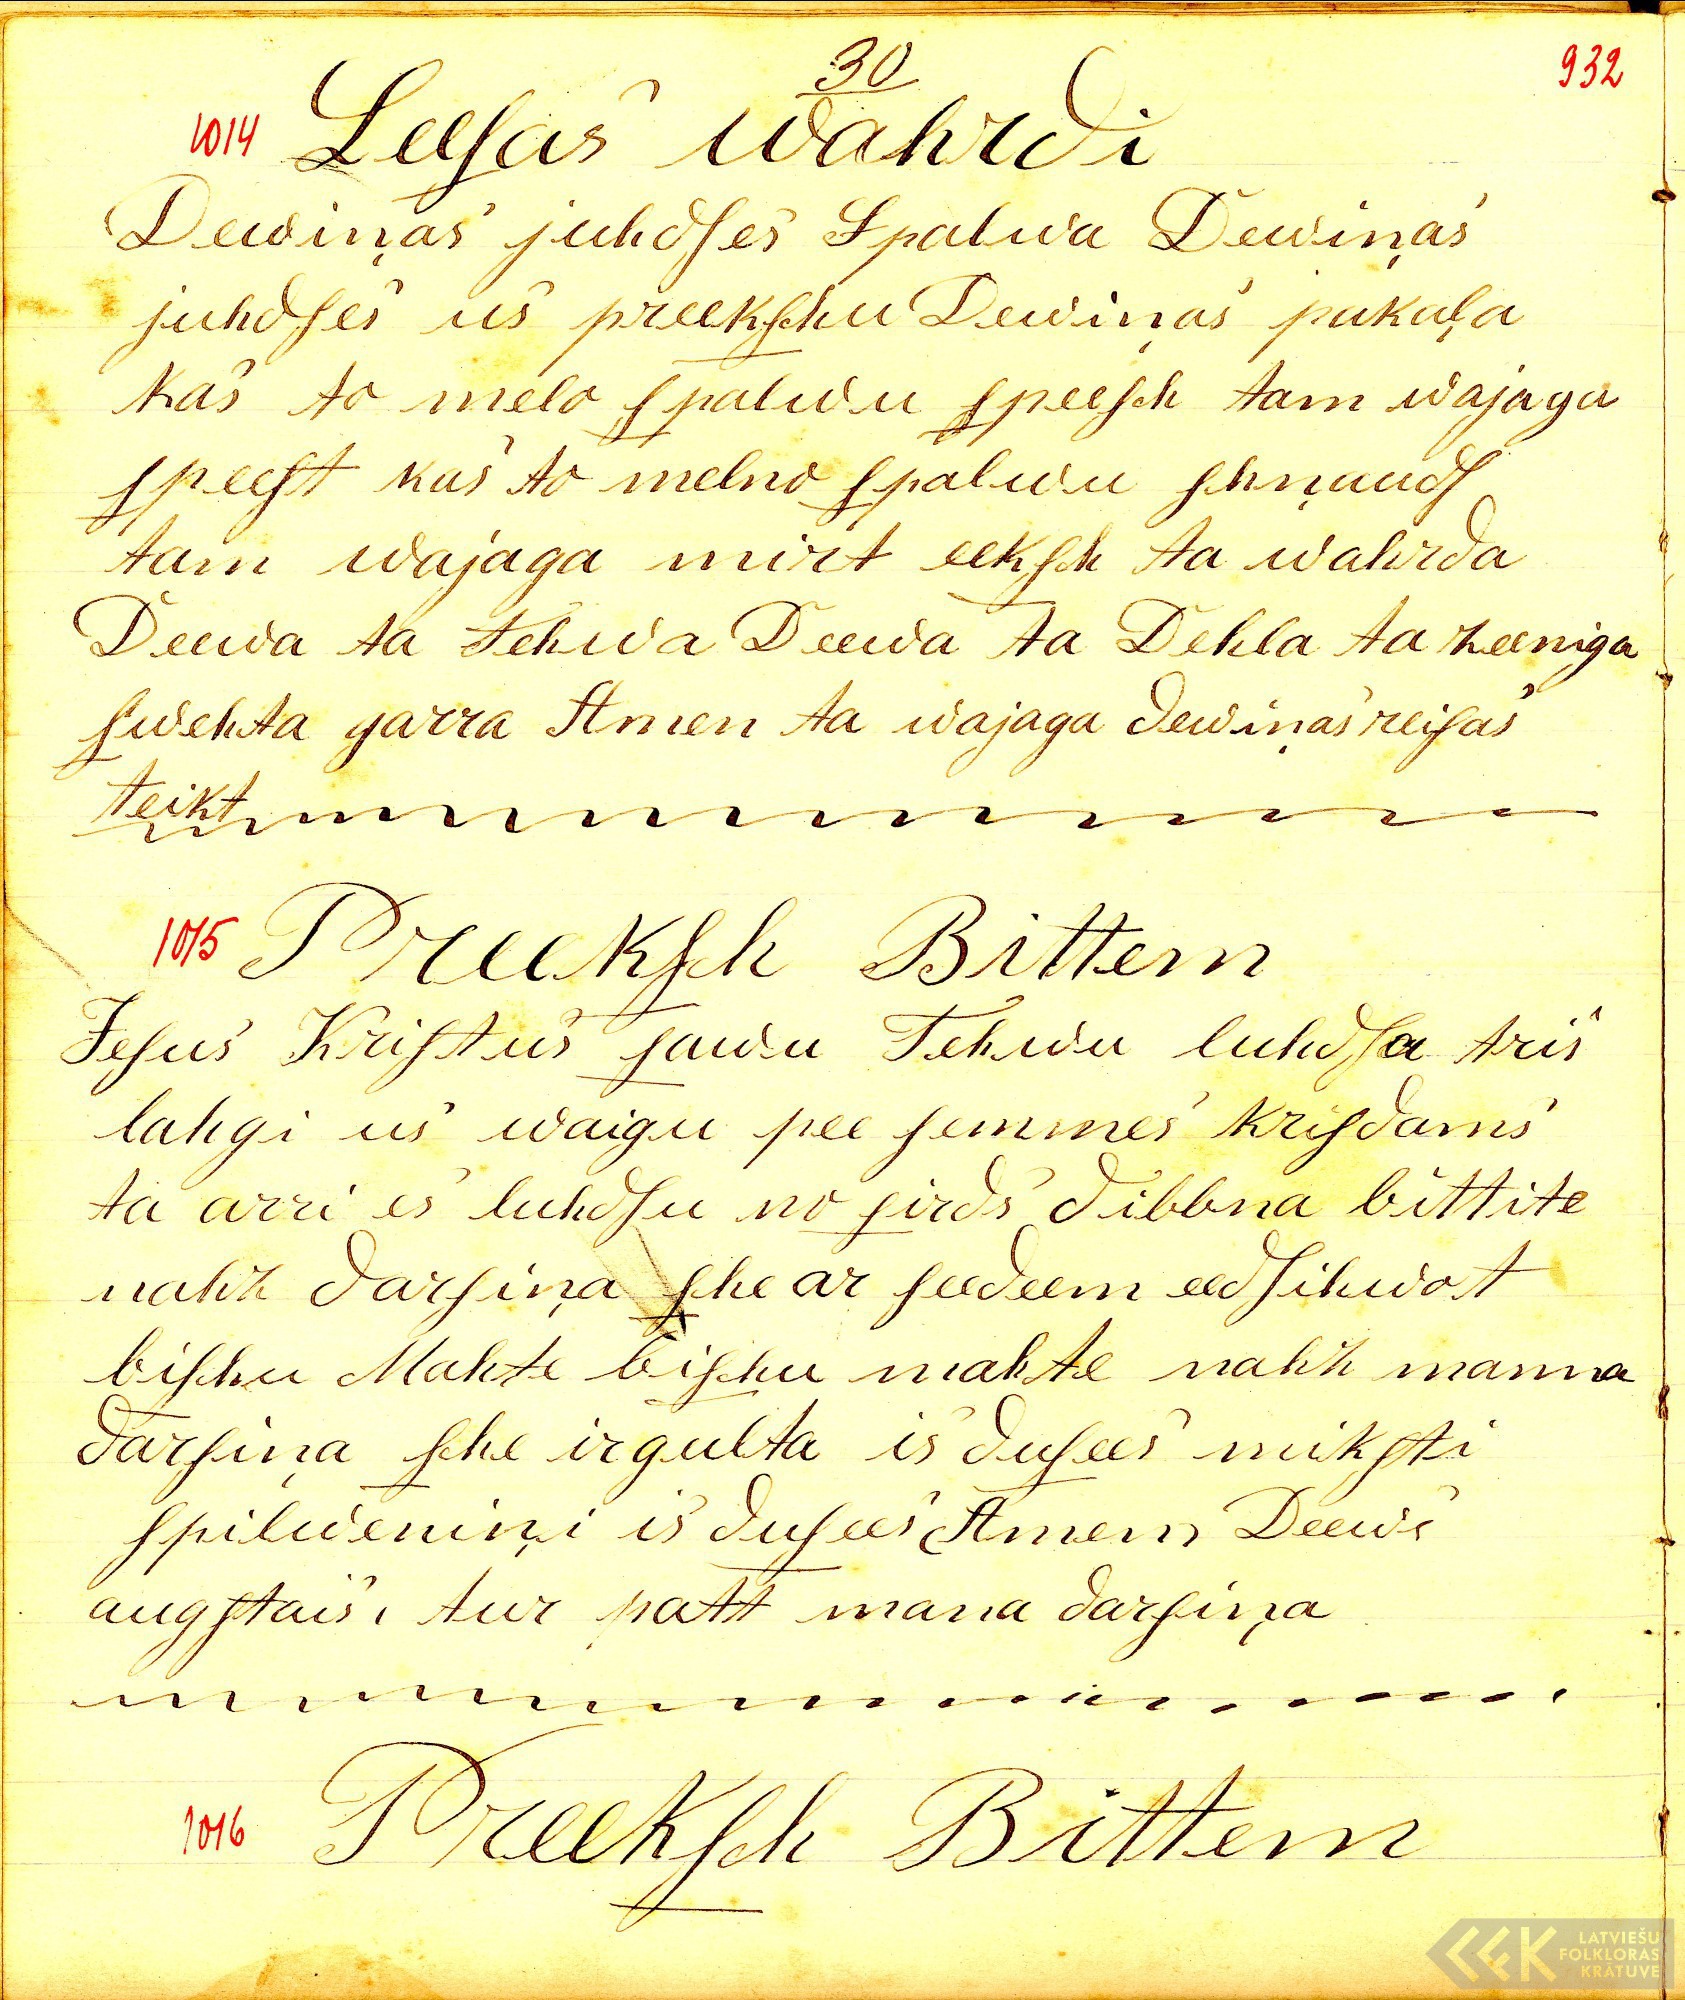 30
932
1014 Leeſas wahrdi
Dewiņas juhdſes Spalwa Dewiņas
juhdſes us preekſchu Dewiņas pakaļa
kas to melo ſpalwu ſpeeſch tam wajaga
ſpeeſt kas to melno ſpalwu ſchņaudſ
tam wajaga mirt eekſch ta wahrda
Deewa ta Tehwa Deewa ta Dehla ta heeniga
ſwehta garra Amen ta wajaga dewiņas reiſas
teikt
1015 Preekſch Bittem
Jeſus Kriſtus ſawu Tehwu luhdſa tris
lahgi us waigu pee ſemmes kriſdams
ta arri es luhdſu no ſirds dibbna bittite
nahk darſiņa ſche ar ſeedeem eedſihwot
biſchu Mahte biſchu mahte nahk manna
darſiņa ſche ir gulta is duſees mikſti
ſpilweniņi is duſees Amen Deews
augſtais, tur patt mana darſiņa
1016 Preekſch Bittem
LATVIEŠU
FOLKLORAS
KRĀTUVE